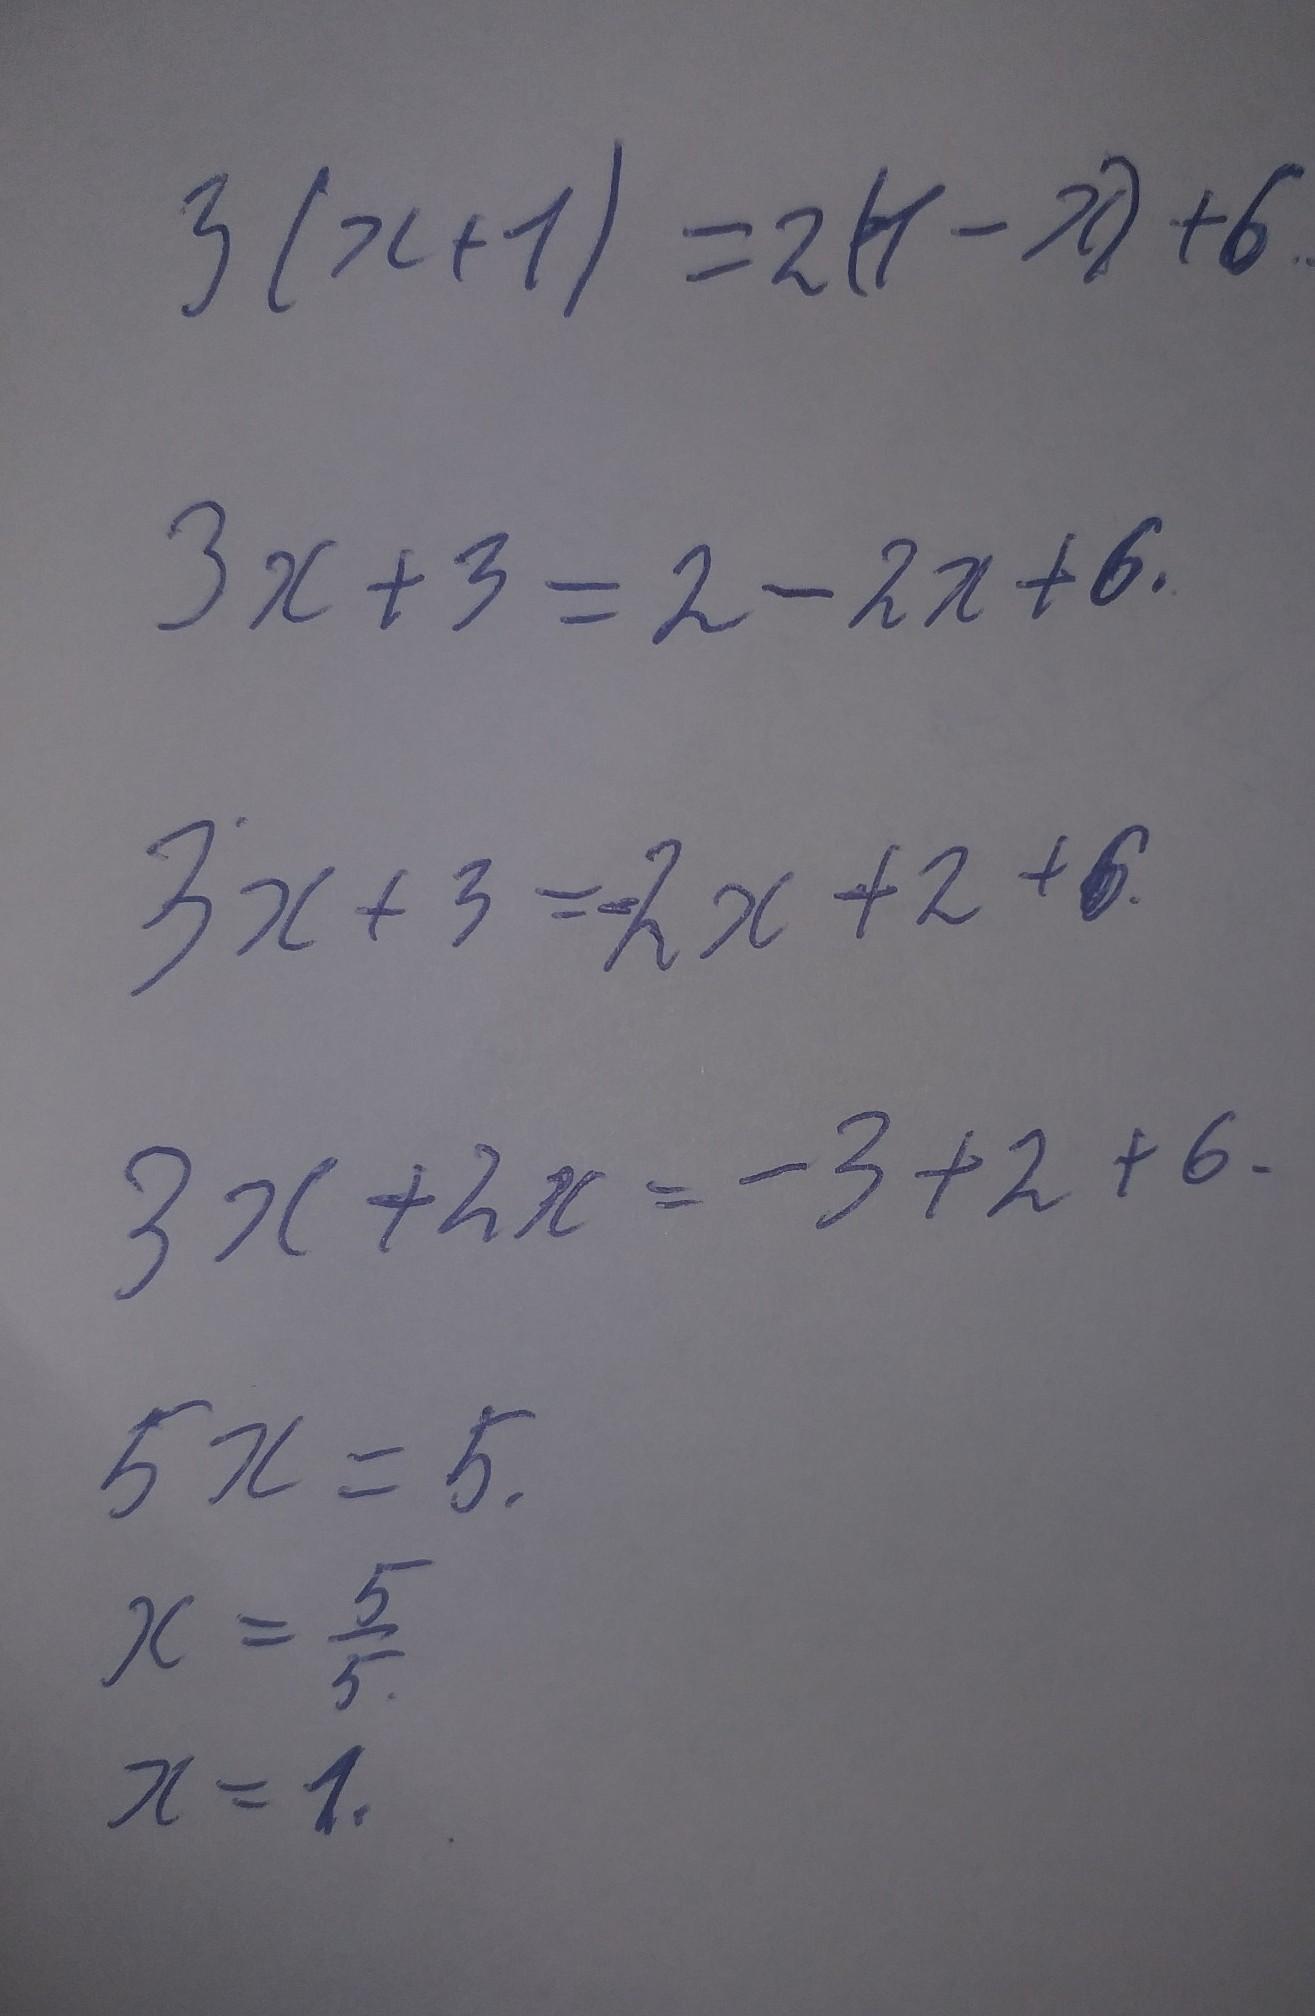 3(x+1) = 2(1-x)+6.
3x+3=2-2x+6.
3x+3=-2x+2+6.
3x+2x=-3+2+6.
5x=5.
x=5/5.
x=1.